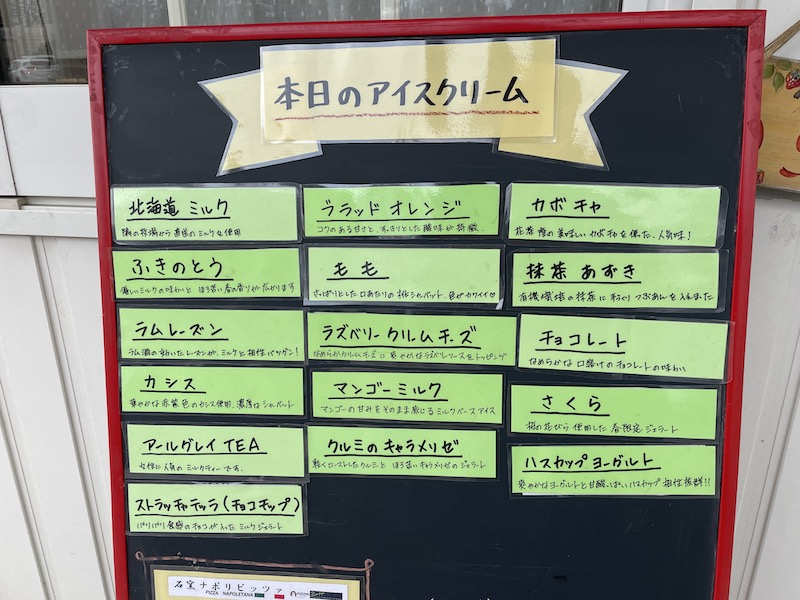 本日のアイスクリーム
北海道 ミルク
隣の牧場から直送のミルクを使用
ふきのとう
優しいミルクの味わいと ほろ苦い春の香りが広がります
ラムレーズン
ラム酒の効いたレーズンが、ミルクと相性バツグン!
カシス
華やかな赤紫色のカシス使用、濃厚なシャーベット
アールグレイ TEA
女性に人気のミルクティーです。
ストラッチャテッラ(チョコチップ)
パリパリ食感のチョコが入った ミルクジェラート
ブラッド オレンジ
コクのある甘さと、すっきりとした酸味が特徴
もも
さっぱりとした口あたりの桃シャーベット、色がカワイイ♡
ラズベリー クリームチーズ
なめらかクリームチーズに 爽やかなラズベリーソースをトッピング
マンゴーミルク
マンゴーの甘みをそのまま感じる ミルクベースアイス
クルミのキャラメリゼ
軽くローストしたクルミと ほろ苦いキャラメリゼのジェラート
カボチャ
美味しい カボチャを使った、人気味!
抹茶 あずき
有機環境の抹茶に つぶあんを入れました
チョコレート
なめらかな口溶けの チョコレートの味わい
さくら
桜の花びら 使用した 春限定ジェラート
ハスカップ ヨーグルト
爽やかなヨーグルトと甘酸っぱいハスカップ 相性抜群!!
石窯ナポリピッツァ
PIZZA NAPOLETANA